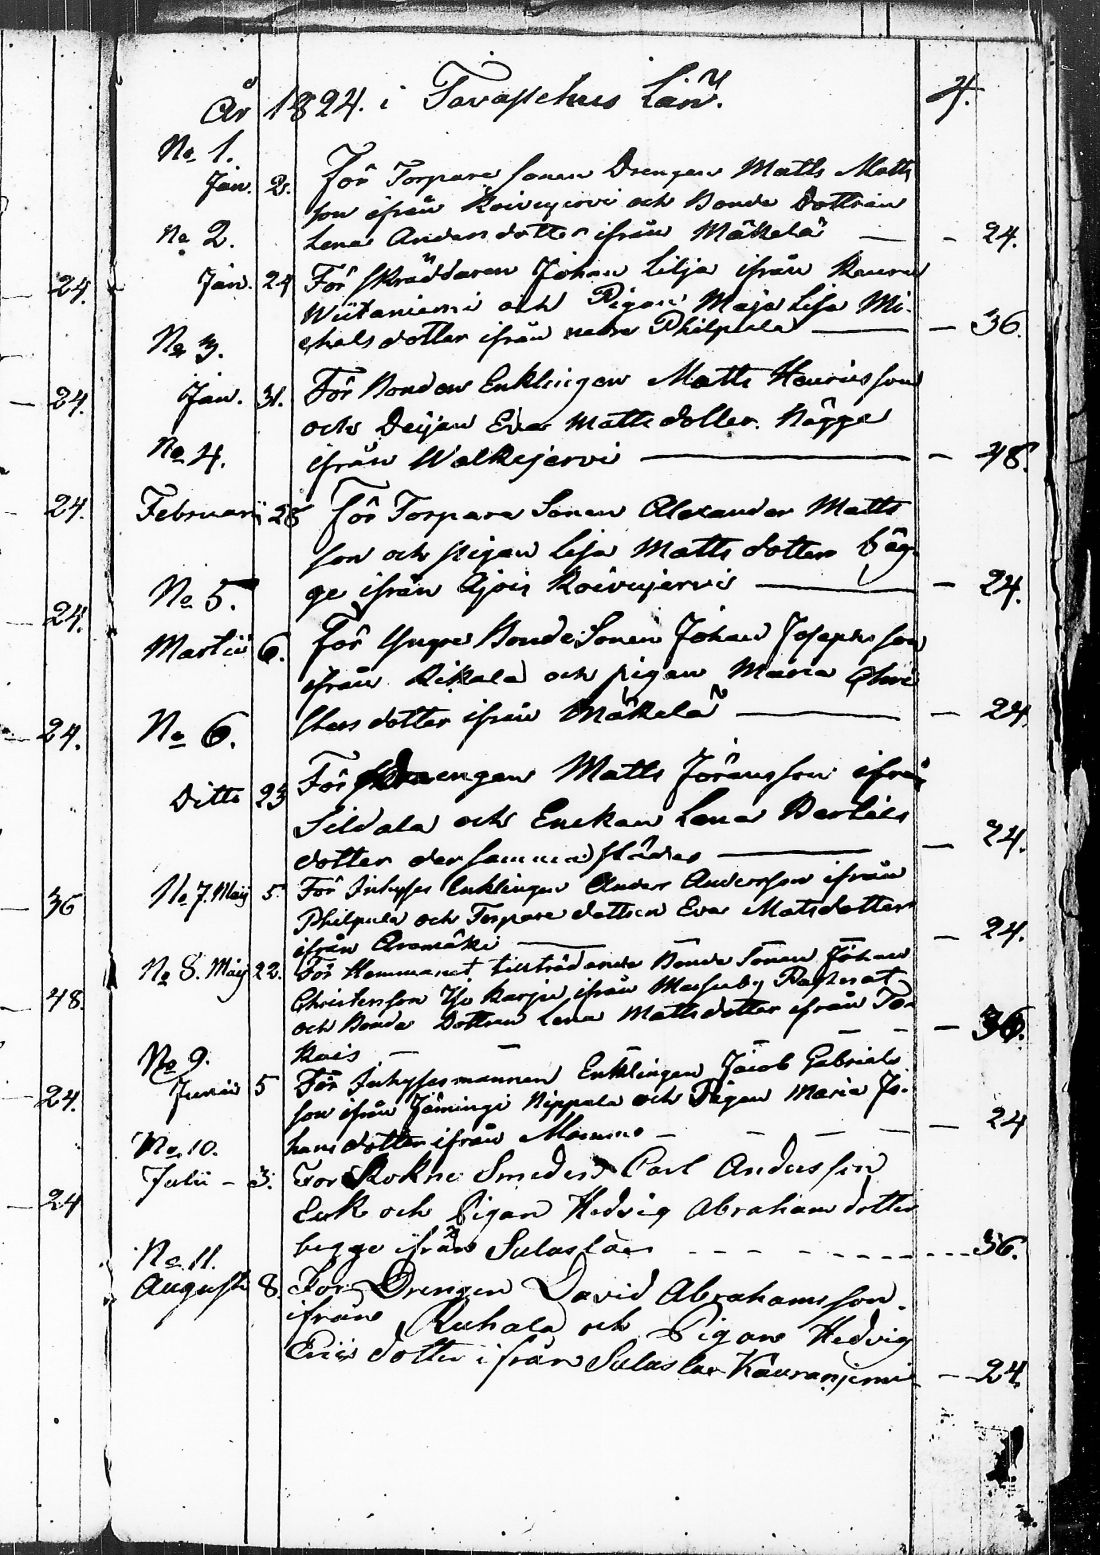 24.
24.
24.
24.
24.
36
48.
24.
24
År 1824. i Tavastehus Län. 4.
No 1.
Jan. 2. För Torpare sonen Drengen Matts Matts
son ifrån Koivujervi och Bonde Dottren
No 2. Lena Anders dotter ifrån Mäkelä — 24.
Jan. 24 För Skräddaren Johan Lilja ifrån
Wiitaniemi och Pigan Maja Lisa Mi-
No 3. chels dotter ifrån nedre Philpula — 36.
Jan. 31. För Bonden Enklingen Matts Henricsson
och Deijan Eva Mattsdotter bägge
No 4. ifrån Walkejervi — 48.
Februarii 28 för Torpare Sonen Alexander Matts
son och pigan Lisa Matts dotter bäg-
No 5. ge ifrån Ajois Koivujervi — 24.
Martii 6. För Yngre Bonde Sonen Johan Josephsson
ifrån Rikala och pigan Maria Chri
No 6. stersdotter ifrån Mäkelä — 24.
Ditto 23 För Drengen Matts Jöransson ifrån
Sildala och Enckan Lena Bertils
dotter der sammastädes — 24.
No 7. Maij 5. För Inhyses Enklingen Anders Andersson ifrån
Philpula och Torpare dottren Eva Matsdotter
ifrån Aromäki — 24.
No 8. Maij 22. För Hemmanet tillträdande Bonde Sonen Johan
Christersson Yso Karju ifrån Massuby
och Bonde Dottren Lena Mattsdotter ifrån Tor
kais — 36.
No 9.
Junii 5 För Inhysesmannen Enklingen Jacob Gabriels
son ifrån Jämingi Nippala och Pigan Maria Jo-
No. 10. hansdotter ifrån — 24
Julii – 3. För Sokne Smeden Carl Andersson
Enk och Pigan Hedvig Abrahamsdotter
No. 11. begge ifrån Sulaslax — 36.
Augusti 8. For Drengen David Abrahamsson
ifrån Ruhala och Pigan Hedvig
Eriks dotter ifrån Sulaslax — 24